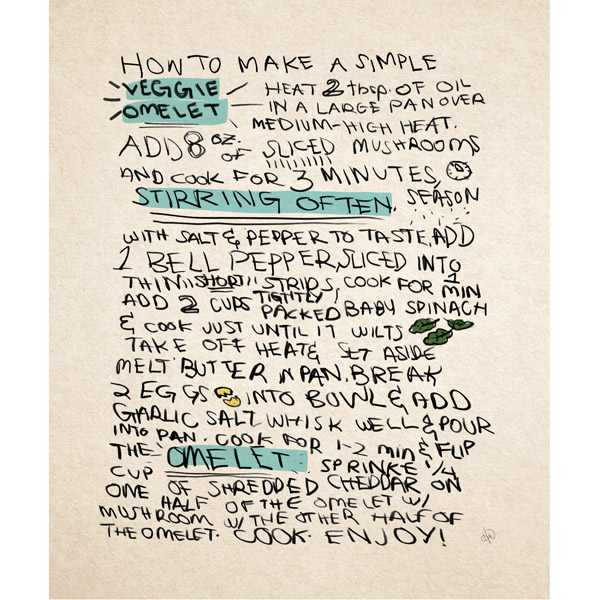 HOW TO MAKE A SIMPLE
VEGGIE HEAT 2 tbsp. OF OIL
OMELET IN A LARGE PAN OVER
MEDIUM-HIGH HEAT.
ADD 8 oz. OF SLICED MUSHROOMS
AND COOK FOR 3 MINUTES,
STIRRING OFTEN, SEASON
WITH SALT & PEPPER TO TASTE, ADD
1 BELL PEPPER, SLICED INTO
THIN SHORT STRIPS, COOK FOR 1 MIN
ADD 2 CUPS TIGHTLY PACKED BABY SPINACH
& COOK JUST UNTIL IT WILTS
TAKE OFF HEAT & SET ASIDE
MELT BUTTER IN PAN. BREAK
2 EGGS INTO BOWL & ADD
GARLIC SALT WHISK WELL & POUR
INTO PAN. COOK FOR 1-2 min & FLIP
THE OMELET. SPRINKE 1/4
CUP OF SHREDDED CHEDDAR ON
ONE HALF OF THE OMELET W/
MUSHROOM W/ THE OTHER HALF OF
THE OMELET. COOK. ENJOY!